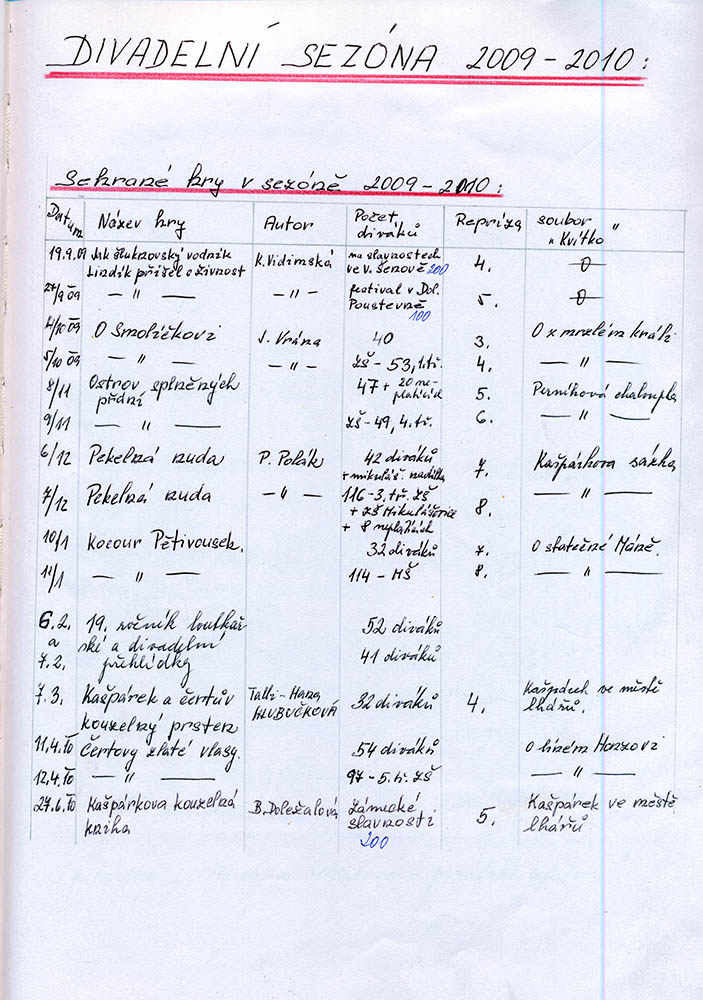 DIVADELNÍ SEZÓNA 2009-2010:
Sehrané hry v sezóně 2009-2010:
Datum Název hry Autor Počet diváků Repríza soubor "Kvítko"
19.9.09 Jak šluknovský vodník K. Vidimská na slavnostech 4. 0
Lindík přišel o živnost ve V. Šenově 200
27/9 09 — " — — " — festival v Dol. 5. 0
Poustevně
100
4/10 09 O Smolíčkovi J. Vrána 40 3. O zmrzlém králi
5/10 09 — " — — " — ZŠ - 53, 1. tř. 4. — " —
8/11 Ostrov splněných 47 + 20 ne- 5. Perníková chaloupka
přání platících
9/11 — " — ZŠ-49, 4. tř. 6. — " —
6/12 Pekelná nuda P. Polák 42 diváků 7. Kašpárkova sázka
+ mikuláš. nadílka
7/12 Pekelná nuda — " — 116-3. tř. ZŠ 8. — " —
+ ZŠ Mikulášovice
+ 8 neplatících
10/1 Kocour Pětivousek. 32 diváků 7. O statečné Máně.
11/1 — " — 114 - MŠ 8. — " —
6.2. 19. ročník loutkář- 52 diváků
a ské a divadelní
7.2. přehlídky 41 diváků
7.3. Kašpárek a čertův - Hana 32 diváků 4. Kašpárek ve městě
kouzelný prsten HLUBUČKOVÁ lhářů.
11.4.10 Čertovy zlaté vlasy. 54 diváků O líném Honzovi
12.4.10 — " — 97 - 5. tř. ZŠ — " —
27.6.10 Kašpárkova kouzelná B. Doležalová Zámecké 5. Kašpárek ve městě
kniha slavnosti lhářů
200